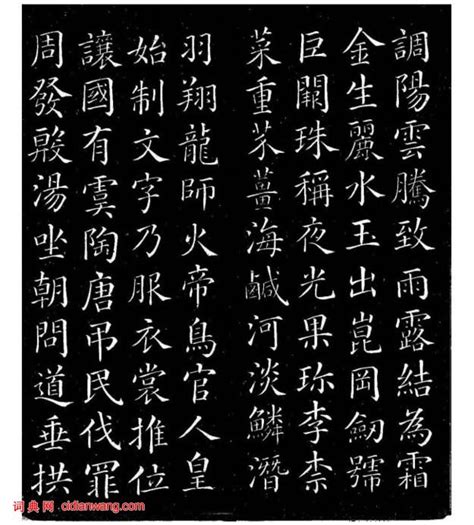 調陽雲騰致雨露結為霜
金生麗水玉出崑岡劒號
巨闕珠稱夜光果珎李柰
菜重芥薑海鹹河淡鱗潛
羽翔龍師火帝鳥官人皇
始制文字乃服衣裳推位
讓國有虞陶唐弔民伐罪
周發殷湯坐朝問道垂拱
词典网 cidianwang.com